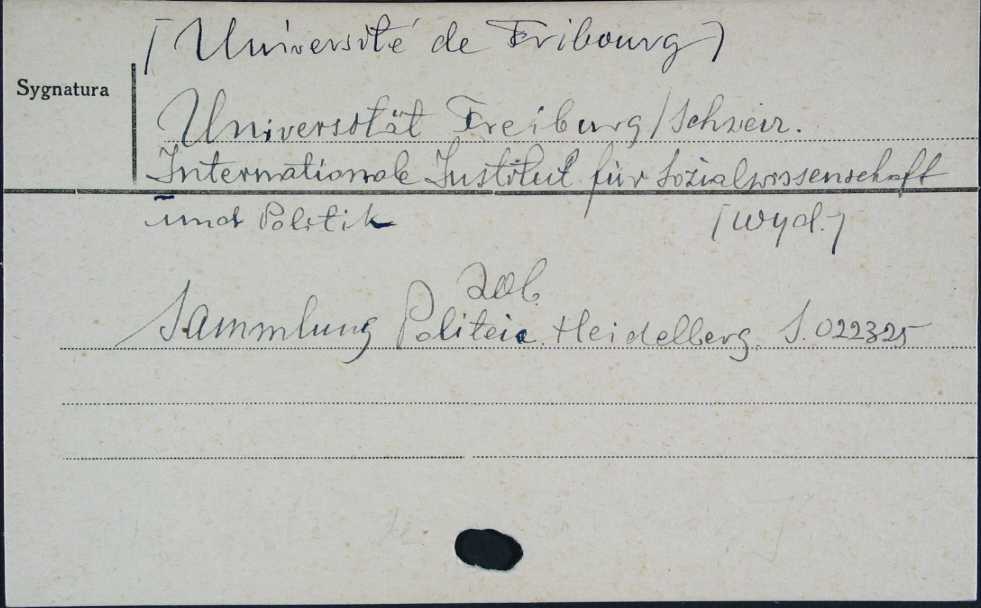 [Université de Fribourg]
Sygnatura
Universität Freiburg/Schweiz.
Internationale Institut für Sozialwissenschaft
und Politik [wyd.]
zob.
Sammlung Politeia. Heidelberg. S. 022325